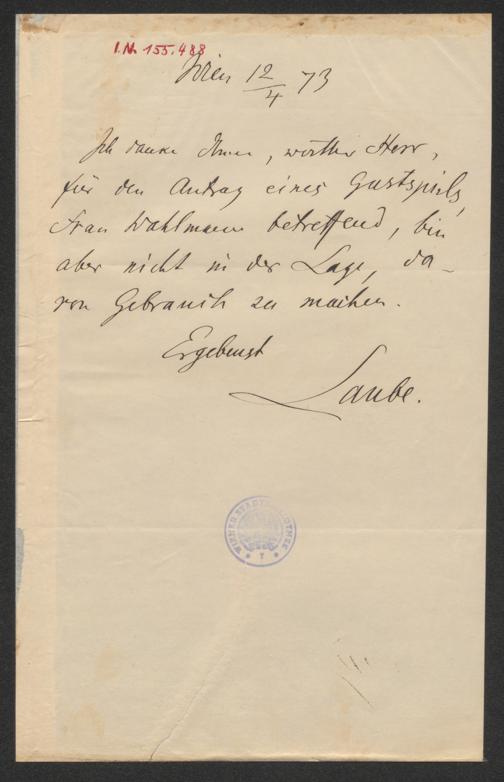 I.N. 155.488
Wien 12/4 73
Ich danke Ihnen, werther Herr,
für den Antrag eines Gastspiels,
Frau Wahlmann betreffend, bin
aber nicht in der Lage, da-
von Gebrauch zu machen.
Ergebenst
Laube.
WIENER STADTBIBLIOTHEK